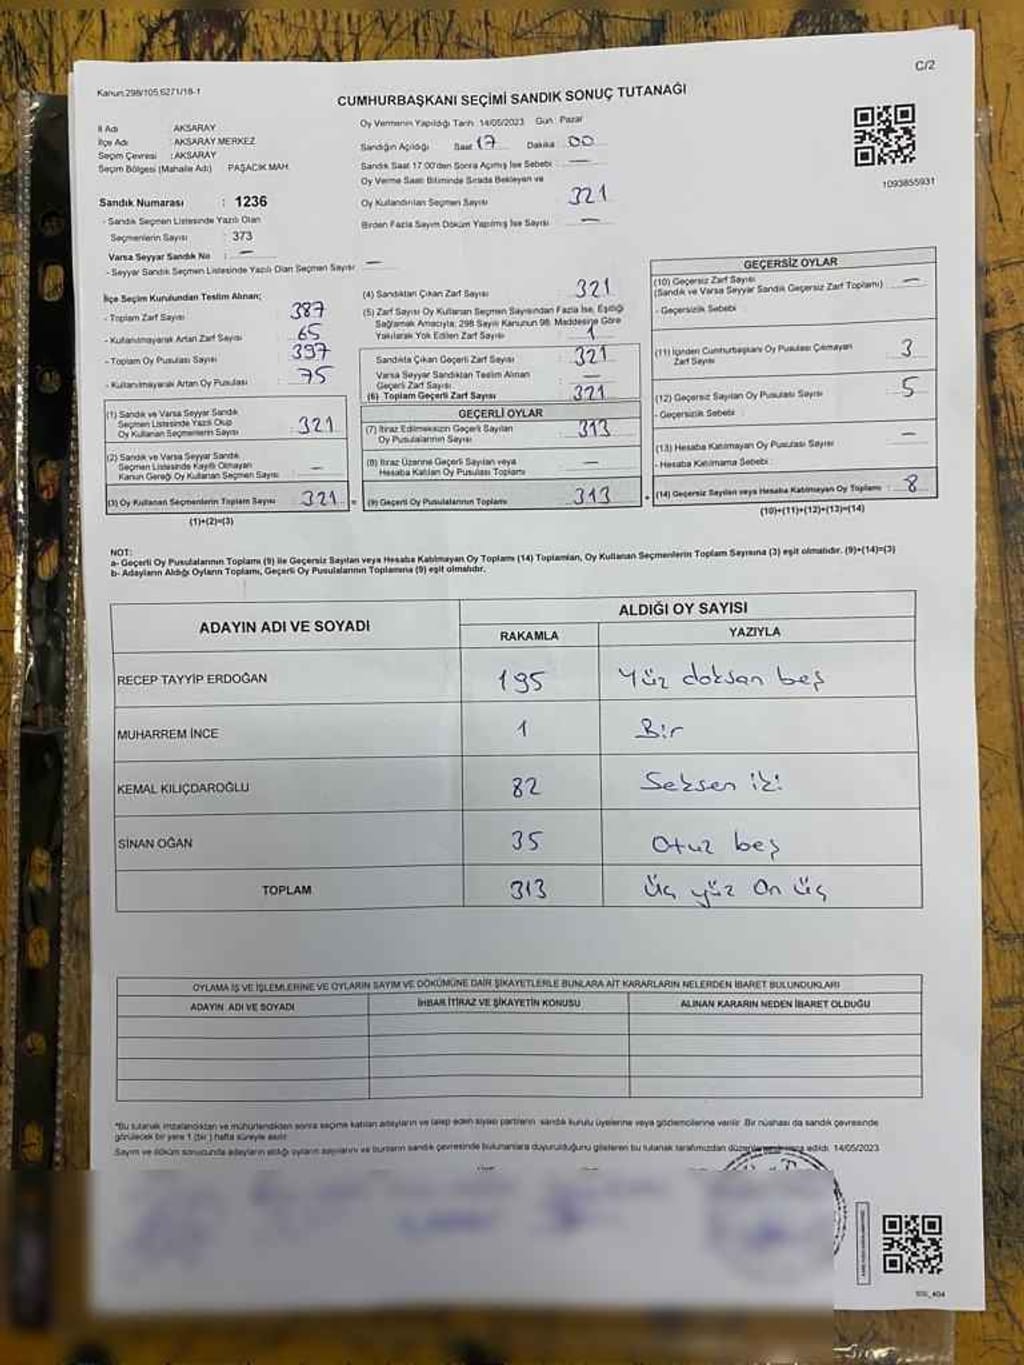 C/2
Kanun:298/105,6271/18-1
CUMHURBAŞKANI SEÇİMİ SANDIK SONUÇ TUTANAĞI
İl Adı AKSARAY
İlçe Adı AKSARAY MERKEZ
Seçim Çevresi : AKSARAY
Seçim Bölgesi (Mahalle Adı) PAŞACIK MAH.
Oy Vermenin Yapıldığı Tarih: 14/05/2023 Gün: Pazar
Sandığın Açıldığı Saat 17 Dakika 00
Sandık Saat 17:00'den Sonra Açılmış İse Sebebi —
Oy Verme Saati Bitiminde Sırada Bekleyen ve
Oy Kullandırılan Seçmen Sayısı 321
Birden Fazla Sayım Döküm Yapılmış İse Sayısı —
1093855931
Sandık Numarası : 1236
- Sandık Seçmen Listesinde Yazılı Olan
Seçmenlerin Sayısı : 373
Varsa Seyyar Sandık No : —
- Seyyar Sandık Seçmen Listesinde Yazılı Olan Seçmen Sayısı —
İlçe Seçim Kurulundan Teslim Alınan;
- Toplam Zarf Sayısı 387
- Kullanılmayarak Artan Zarf Sayısı 65
- Toplam Oy Pusulası Sayısı 397
- Kullanılmayarak Artan Oy Pusulası 75
(1) Sandık ve Varsa Seyyar Sandık
Seçmen Listesinde Yazılı Olup
Oy Kullanan Seçmenlerin Sayısı 321
(2) Sandık ve Varsa Seyyar Sandık
Seçmen Listesinde Kayıtlı Olmayan
Kanun Gereği Oy Kullanan Seçmen Sayısı —
(3) Oy Kullanan Seçmenlerin Toplam Sayısı 321 =
(1)+(2)=(3)
(4) Sandıktan Çıkan Zarf Sayısı 321
(5) Zarf Sayısı Oy Kullanan Seçmen Sayısından Fazla İse, Eşitliği
Sağlamak Amacıyla; 298 Sayılı Kanunun 98. Maddesine Göre
Yakılarak Yok Edilen Zarf Sayısı 1
Sandıkta Çıkan Geçerli Zarf Sayısı 321
Varsa Seyyar Sandıktan Teslim Alınan
Geçerli Zarf Sayısı —
(6) Toplam Geçerli Zarf Sayısı 321
GEÇERLİ OYLAR
(7) İtiraz Edilmeksizin Geçerli Sayılan
Oy Pusulalarının Sayısı 313
(8) İtiraz Üzerine Geçerli Sayılan veya
Hesaba Katılan Oy Pusulası Toplamı —
(9) Geçerli Oy Pusulalarının Toplamı 313 +
GEÇERSİZ OYLAR
(10) Geçersiz Zarf Sayısı
(Sandık ve Varsa Seyyar Sandık Geçersiz Zarf Toplamı) —
- Geçersizlik Sebebi
(11) İçinden Cumhurbaşkanı Oy Pusulası Çıkmayan
Zarf Sayısı 3
(12) Geçersiz Sayılan Oy Pusulası Sayısı 5
- Geçersizlik Sebebi
(13) Hesaba Katılmayan Oy Pusulası Sayısı —
- Hesaba Katılmama Sebebi :
(14) Geçersiz Sayılan veya Hesaba Katılmayan Oy Toplamı : 8
(10)+(11)+(12)+(13)=(14)
NOT:
a- Geçerli Oy Pusulalarının Toplamı (9) ile Geçersiz Sayılan veya Hesaba Katılmayan Oy Toplamı (14) Toplamları, Oy Kullanan Seçmenlerin Toplam Sayısına (3) eşit olmalıdır. (9)+(14)=(3)
b- Adayların Aldığı Oyların Toplamı, Geçerli Oy Pusulalarının Toplamına (9) eşit olmalıdır.
ADAYIN ADI VE SOYADI ALDIĞI OY SAYISI
RAKAMLA YAZIYLA
RECEP TAYYİP ERDOĞAN 195 Yüz doksan beş
MUHARREM İNCE 1 Bir
KEMAL KILIÇDAROĞLU 82 Seksen iki
SİNAN OĞAN 35 Otuz beş
TOPLAM 313 Üç yüz On üç
OYLAMA İŞ VE İŞLEMLERİNE VE OYLARIN SAYIM VE DÖKÜMÜNE DAİR ŞİKAYETLERLE BUNLARA AİT KARARLARIN NELERDEN İBARET BULUNDUKLARI
ADAYIN ADI VE SOYADI İHBAR İTİRAZ VE ŞİKAYETİN KONUSU ALINAN KARARIN NEDEN İBARET OLDUĞU
*Bu tutanak imzalandıktan ve mühürlendikten sonra seçime katılan adayların ve talep eden siyasi partilerin sandık kurulu üyelerine veya gözlemcilerine verilir. Bir nüshası da sandık çevresinde
görülecek bir yere 1 (bir) hafta süreyle asılır.
Sayım ve döküm sonucunda adayların aldığı oyların sayılarını ve bunların sandık çevresinde bulunanlara duyurulduğunu gösteren bu tutanak tarafımızdan edildi. 14/05/2023